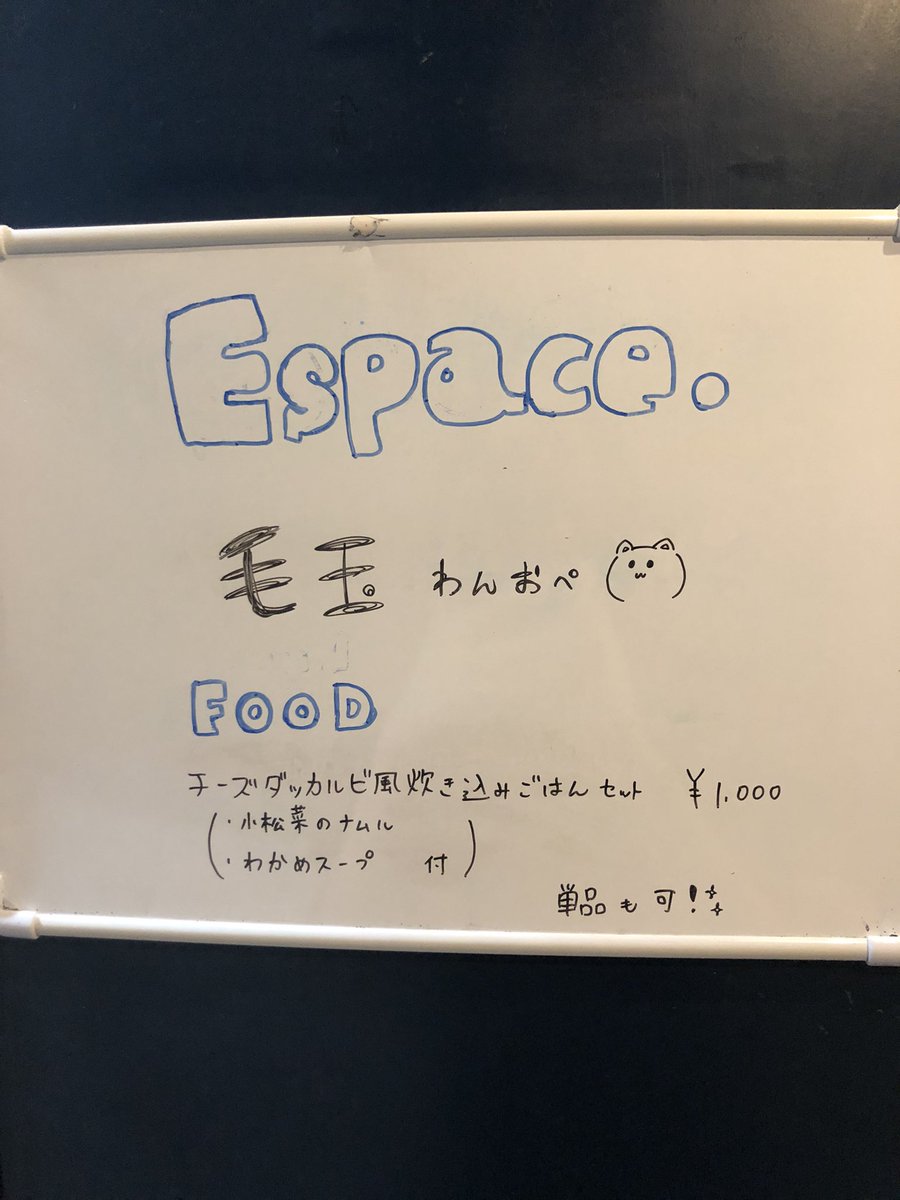 Espace.
毛玉 わんおぺ
FOOD
チーズダッカルビ風炊き込みごはんセット ¥1,000
(・小松菜のナムル
・わかめスープ 付)
単品も可!